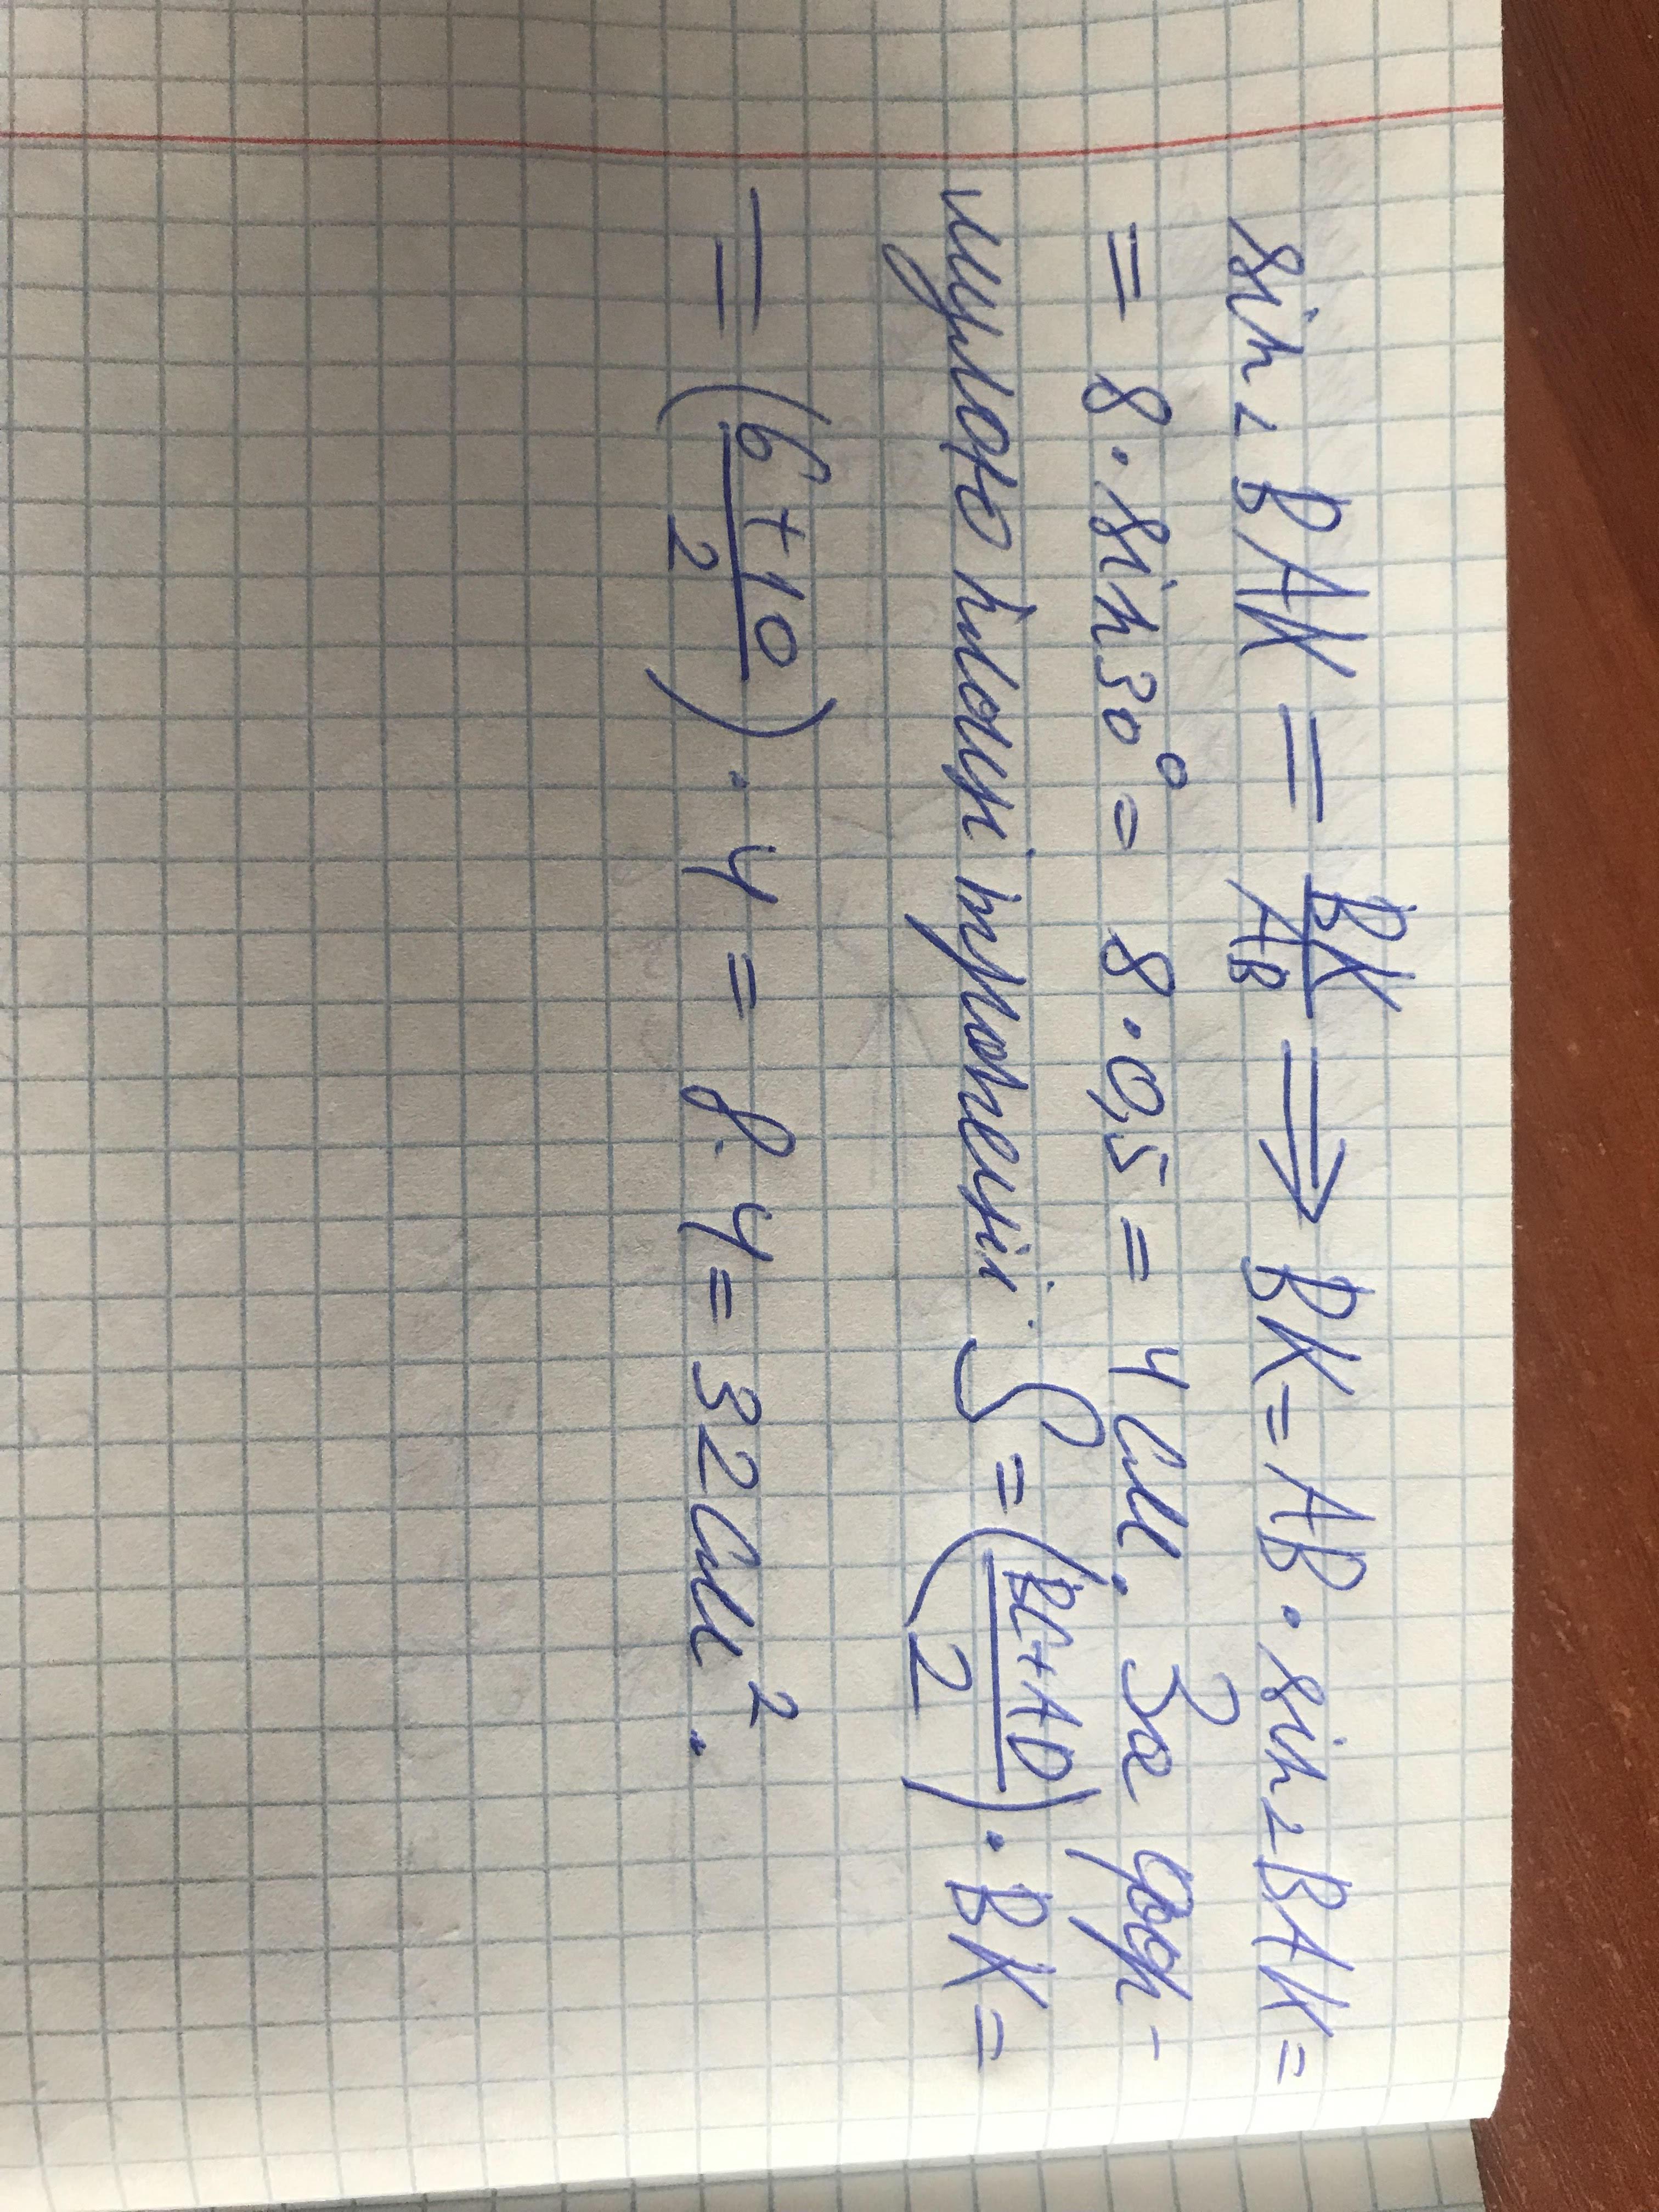 sin∠BAK = BK/AB ⇒ BK = AB · sin∠BAK =
= 8 · sin30° = 8 · 0,5 = 4 см. За фор-
мулою площі трапеції S = (BC+AD/2) · BK =
= (6+10/2) · 4 = 8 · 4 = 32 см².